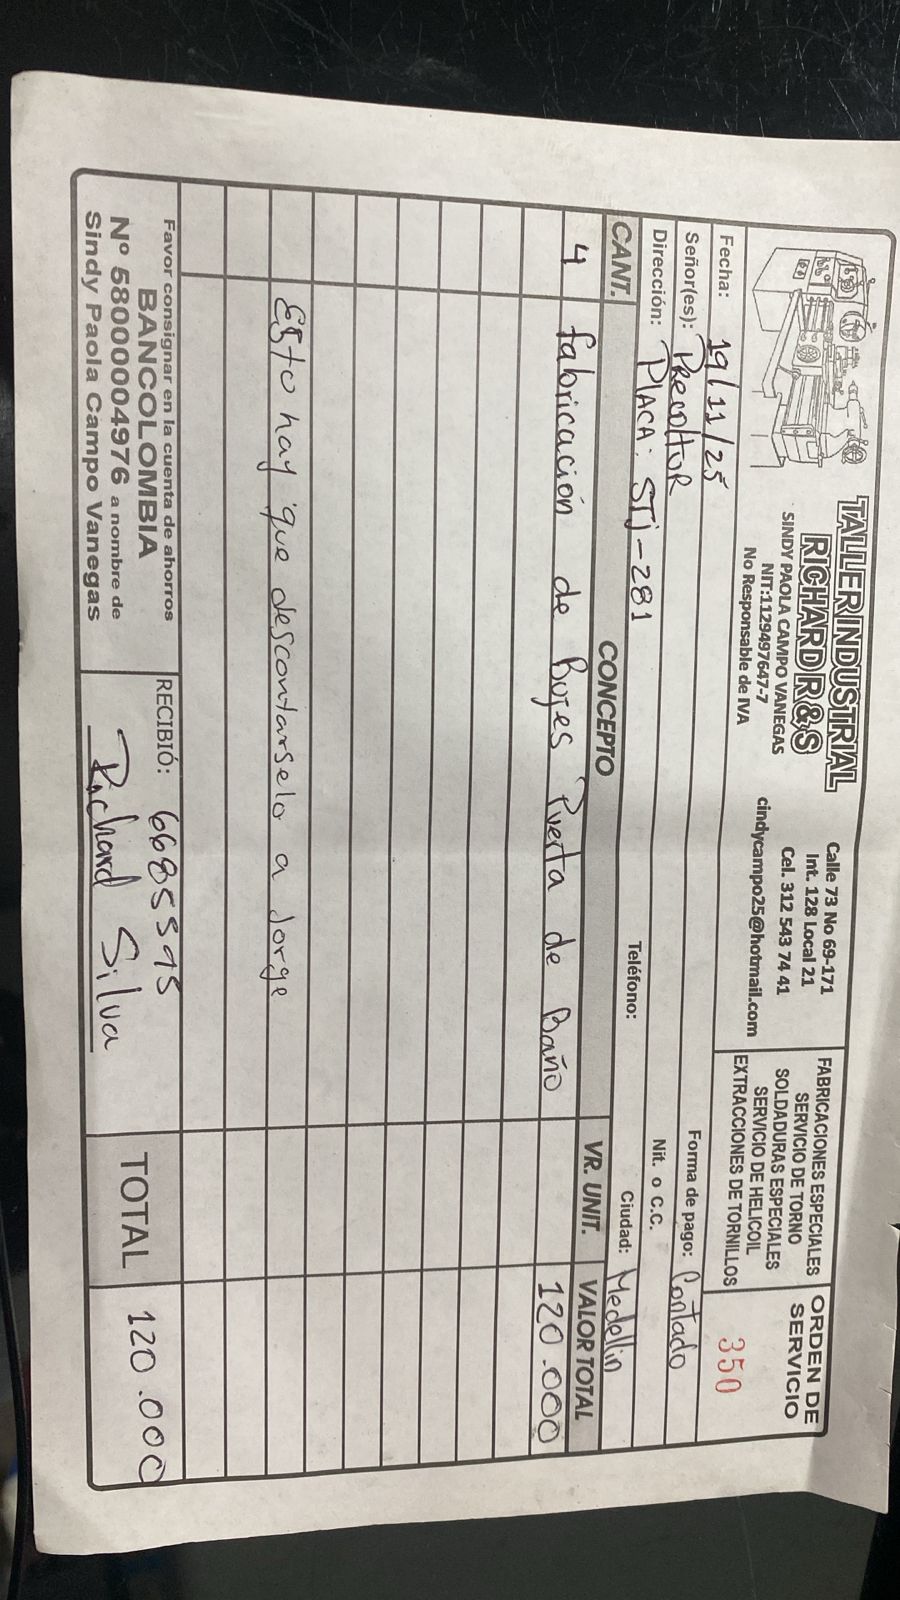 TALLER INDUSTRIAL
RICHARD R&S
SINDY PAOLA CAMPO VANEGAS
NIT:1129497647-7
No Responsable de IVA
Calle 73 No 69-171
Int. 128 Local 21
Cel. 312 543 74 41
cindycampo25@hotmail.com
FABRICACIONES ESPECIALES
SERVICIO DE TORNO
SOLDADURAS ESPECIALES
SERVICIO DE HELICOIL
EXTRACCIONES DE TORNILLOS
ORDEN DE
SERVICIO
350
Fecha: 19/11/25
Señor(es): PRECOLTUR Forma de pago: Contado
Dirección: PLACA: STJ-281 Nit. o C.C.
Teléfono: Ciudad: Medellin
CANT. CONCEPTO VR. UNIT. VALOR TOTAL
4 fabricación de Bujes Puerta de Baño 120.000
Esto hay que descontarselo a Jorge
Favor consignar en la cuenta de ahorros
BANCOLOMBIA
Nº 58000004976 a nombre de
Sindy Paola Campo Vanegas
RECIBIÓ: 6685595
Richard Silva
TOTAL 120.000